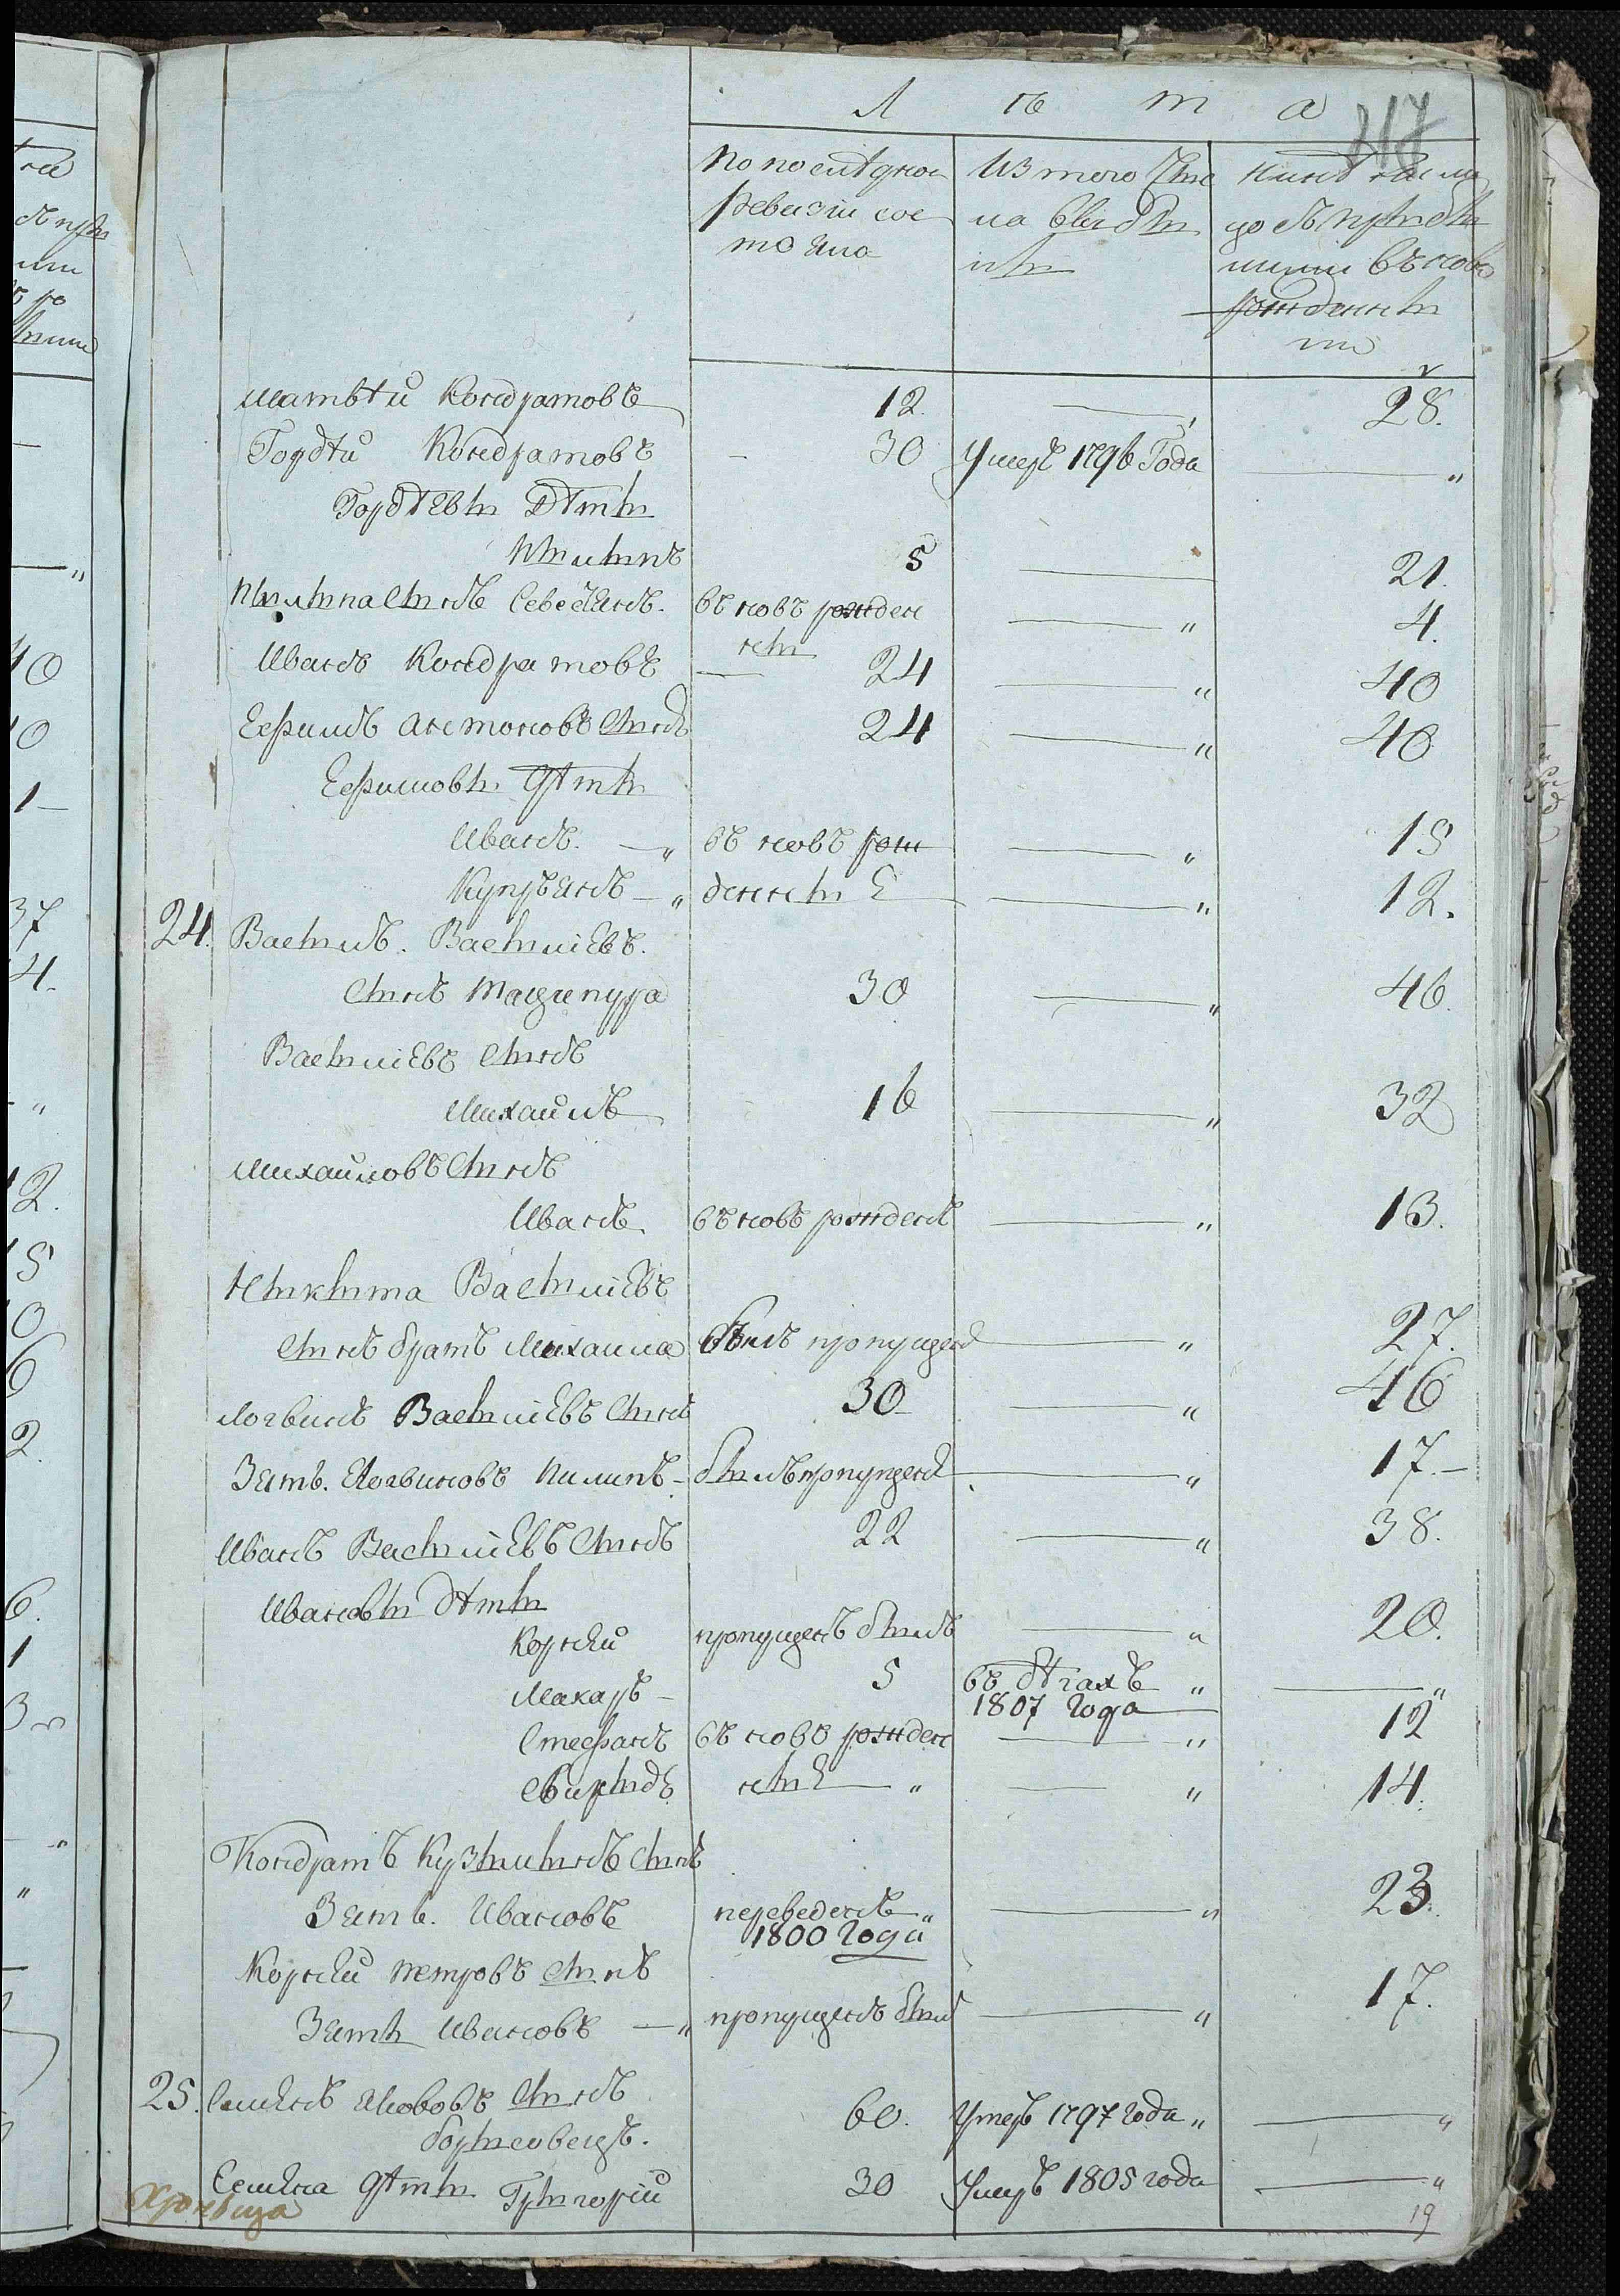 Л ѣ т а
317
По послѣдной ревизіи состояло
Изъ того числа выбыли
Нынѣ на лицо съ прибылыми въ новорожденными
Матвѣй Кондратовъ 12 — 28.
Гордѣй Кондратовъ - 30 Умеръ 1796 Года — "
Гордѣевы Дѣти
Пилипъ 5 — 21.
Пилипа Сынъ Севестьянъ. въ новъ рожденны — " 4.
Иванъ Кондратовъ — 24 — " 40
Ефимъ Антоновъ Сынъ 24 — " 40
Ефимовы Дѣти
Иванъ. — " въ новъ рож — " 15
Купрѣянъ — " денные — " 12.
24. Василъ. Василіевъ.
Сынъ Тащепура 30 — " 46.
Василіевъ Сынъ
Михайлъ 16 — " 32
Михайловъ Сынъ
Иванъ въ новъ рожденъ — " 13.
Никита Василіевъ
Сынъ братъ Михайла былъ пропущенъ — " 27.
Логвинъ Василіевъ Сынъ 30 — " 46
Зять. Логвиновъ Пилипъ - былъ пропущенъ — " 17. —
Иванъ Василіевъ Сынъ 22 — " 38.
Ивановы Дѣти
Корнѣй пропущенъ былъ — " 20.
Макаръ - 5 въ бѣгахъ " — "
1807 года
Стефанъ въ новъ рожден — " 12
Свиридъ ные — " — " 14.
Кондратъ Кузминъ Сынъ
Зять. Ивановъ переведенъ " — " 23.
1800 Года
Корнѣй Петровъ Сынъ
Зять Ивановъ — " пропущенъ былъ — " 17.
25. Семенъ Сынъ
60. Умеръ 1797 года " — "
Семена Дѣти Григорій 30 Умеръ 1805 года — "
19